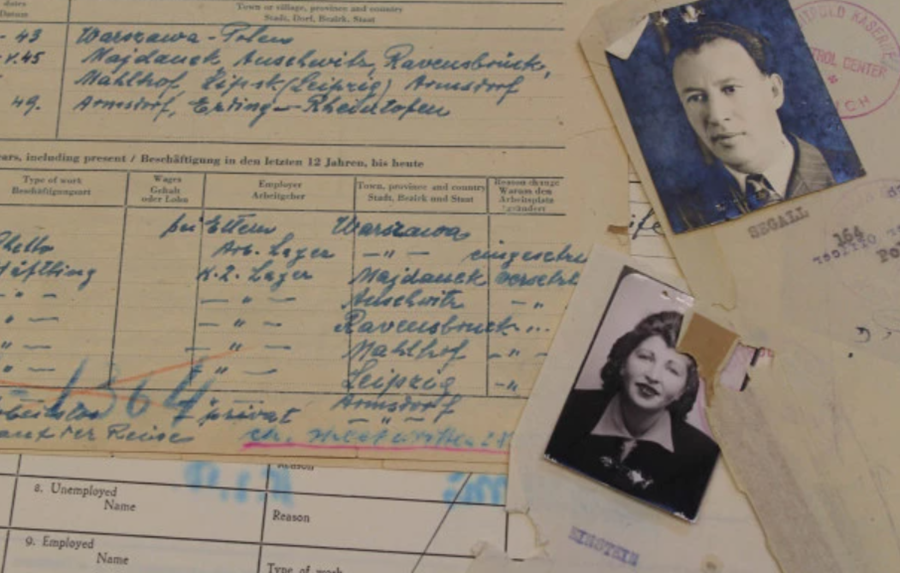 dates
Datum
Town or village, province and country
Stadt, Dorf, Bezirk, Staat
- 43 Warszawa - Polen
- V. 45 Majdanek Auschwitz, Ravensbrück,
Mahlhof, Lipsk (Leipzig) Armsdorf
49. Armsdorf, Erding - Rheintopfen
ears, including present / Beschäftigung in den letzten 12 Jahren, bis heute
Type of work
Beschäftigungsart
Wages
Gehalt
oder Lohn
Employer
Arbeitgeber
Town, province and country
Stadt, Bezirk und Staat
Reason change
Warum den
Arbeitsplatz
geändert
bei Eltern Warszawa
Ghetto Arb. Lager - " - eingesetzt
Häftling K.Z. Lager Majdanek versetzt
- " - - " - Auschwitz - " -
- " - - " - Ravensbrück - " -
- " - - " - Mahlhof - " -
- " - - " - Leipzig - " -
privat Armsdorf
auf der Reise - " -
1364
8. Unemployed
Name
Reason
Reason
9. Employed
Name
Type of work
CONTROL CENTER
SEGALL
164
EINSTEIN